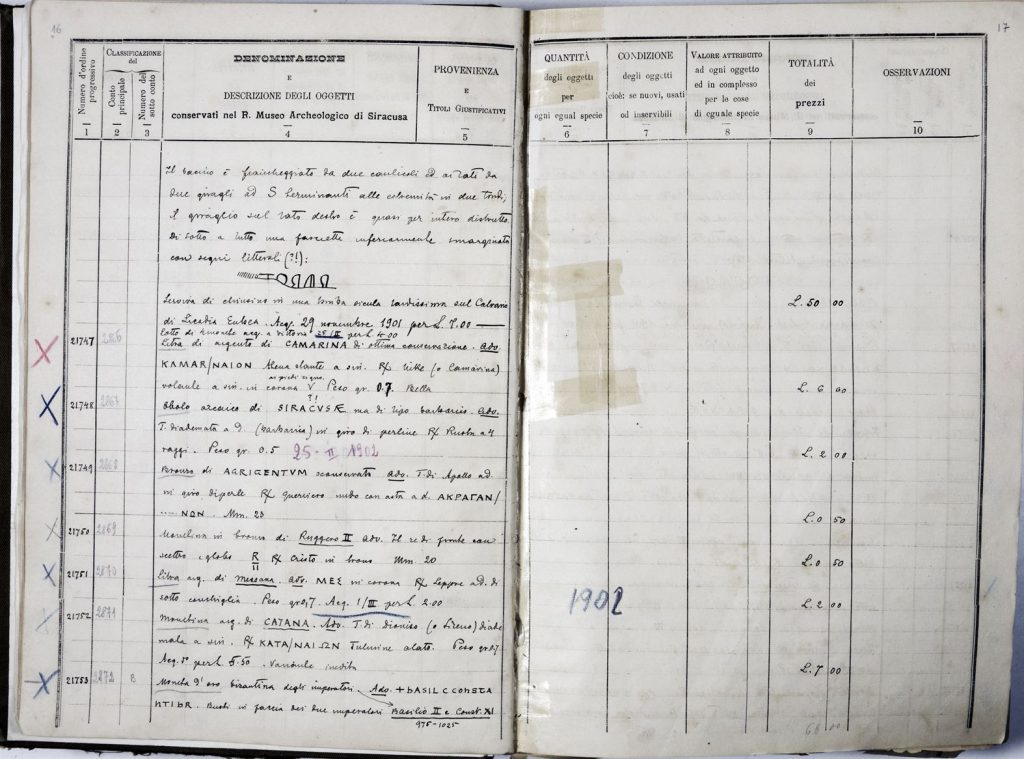 16
17
Numero d'ordine progressivo
CLASSIFICAZIONE del
Conto principale
Numero del sotto conto
DENOMINAZIONE
E
DESCRIZIONE DEGLI OGGETTI
conservati nel R. Museo Archeologico di Siracusa
PROVENIENZA
E
TITOLI GIUSTIFICATIVI
QUANTITÀ
degli oggetti
per
ogni egual specie
CONDIZIONE
degli oggetti
cioè: se nuovi, usati
od inservibili
VALORE ATTRIBUITO
ad ogni oggetto
ed in complesso
per le cose
di eguale specie
TOTALITÀ
dei
prezzi
OSSERVAZIONI
1 2 3 4 5 6 7 8 9 10
Il bacino è fiancheggiato da due caulicoli ed ai lati da
due giragli ad S terminanti alle estremità in due tondi;
il giraglio sul lato destro è quasi per intero distrutto.
Di sotto a tutto una fascetta inferiormente smarginata
con segni litterali (?!):
Serviva di chiusino in una tomba sicula tardissima sul Calvario
di Licodia Eubea. Acq. 29 novembre 1901 per L. 7.00
L. 50 00
Lotto di monete acq. a Vittoria per L. 4.00
21747 2866 Litra di argento di CAMARINA di ottima conservazione. Adv.
KAMAR/NAION Atena stante a sin. R/ Nike (o Camarina)
ai piedi cigno
volante a sin. in corona V Peso gr. 0.7 Bella
L. 6 00
21748 2867 Obolo arcaico di SIRACVSÆ ma di tipo barbarico. Adv.
T. diademata a d. (barbarica) in giro di perline R/ Ruota a 4
raggi. Peso gr. 0.5 25-II 1902
L. 2 00
21749 2868 Bronzo di AGRIGENTVM sconservato Adv. T. di Apollo a d.
in giro di perle R/ Guerriero nudo con asta a d. ΑΚΡΑΓΑΝ/
... ΝΩΝ. Mm. 23
L. 0 50
21750 2869 Monetina in bronzo di Ruggero II Adv. Il re di fronte con
scettro e globo R II R/ Cristo in trono Mm. 20
L. 0 50
21751 2870 Litra arg. di Messana. Adv. ΜΕΣ in corona R/ Leppre a d. di
sotto conchiglia. Peso gr 0,7. Acq. 1/III per L. 2.00
1902
L. 2 00
21752 2871 Monetina arg. di CATANA. Adv. T. di dioniso (o Sileno) diade
mata a sin. R/ ΚΑΤΑ/ΝΑΙΩΝ Fulmine alato. Peso gr 0,7
Acq. per L. 5.50. Variante inedita
L. 7 00
21753 2872 B Moneta d'oro bizantina degli imperatori Adv. + BASIL C CONSTA
NTI BR. Busti in faccia dei due imperatori Basilio II e Const. XI
975-1025
68 00